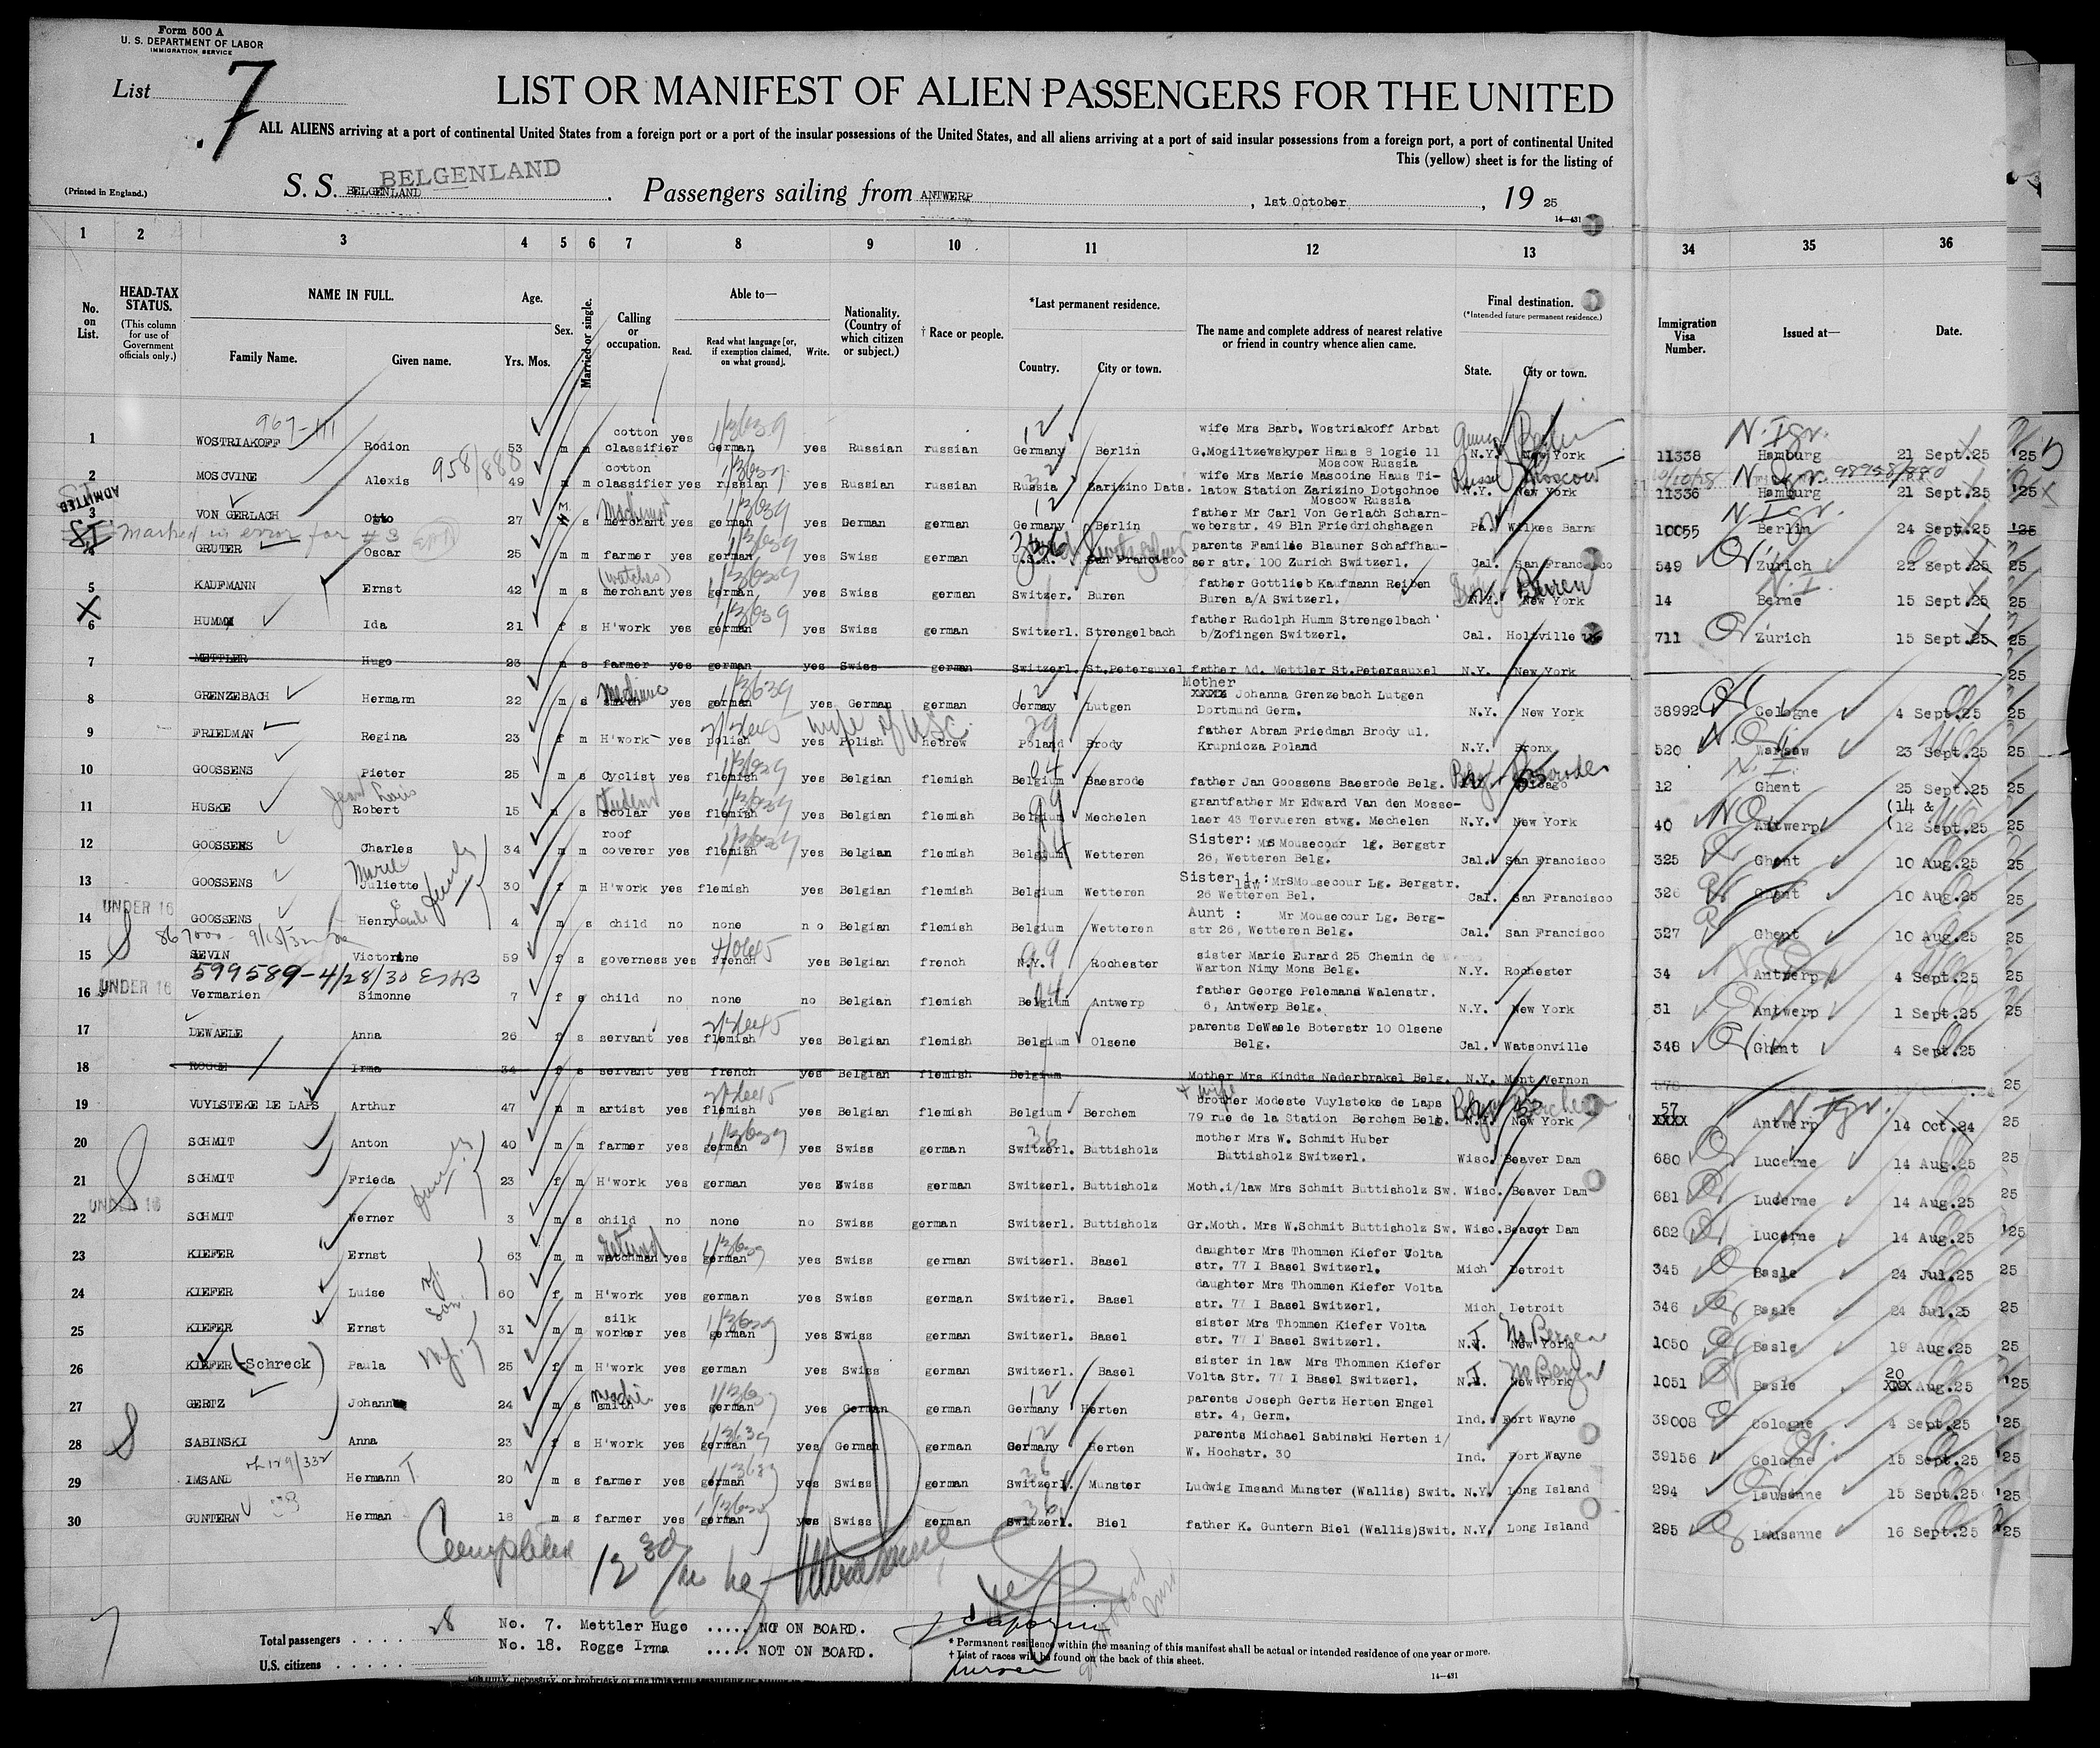 Form 500 A
U. S. DEPARTMENT OF LABOR
IMMIGRATION SERVICE
List 7
LIST OR MANIFEST OF ALIEN PASSENGERS FOR THE UNITED
ALL ALIENS arriving at a port of continental United States from a foreign port or a port of the insular possessions of the United States, and all aliens arriving at a port of said insular possessions from a foreign port, a port of continental United
This (yellow) sheet is for the listing of
(Printed in England.)
BELGENLAND
S. S. BELGENLAND. Passengers sailing from ANTWERP, 1st October, 19 25
14—431
1 2 3 4 5 6 7 8 9 10 11 12 13 34 35 36
No. on List.
HEAD-TAX STATUS.
(This column for use of Government officials only.)
NAME IN FULL.
Family Name. Given name.
Age.
Yrs. Mos.
Sex.
Married or single.
Calling or occupation.
Able to—
Read. Read what language [or, if exemption claimed, on what ground]. Write.
Nationality. (Country of which citizen or subject.)
† Race or people.
*Last permanent residence.
Country. City or town.
The name and complete address of nearest relative or friend in country whence alien came.
Final destination.
(*Intended future permanent residence.)
State. City or town.
Immigration Visa Number.
Issued at—
Date.
1 WOSTRIAKOFF Rodion 53 m m cotton classifier yes German yes Russian russian Germany Berlin wife Mrs Barb. Wostriakoff Arbat G.Mogiltzewskyper Haus 8 logie 11 Moscow Russia N.Y. New York 11338 Hamburg 21 Sept.25
958/888
2 MOSCVINE Alexis 49 m m cotton classifier yes russian yes Russian russian Russia Zarizino Dats. wife Mrs Marie Mascoine Haus Ti-latow Station Zarizino Dotschnoe Moscow Russia Moscow N.Y. New York 11336 Hamburg 21 Sept.25
ADMITTED
3 VON GERLACH Otto 27 M s merchant yes german yes German german Germany Berlin father Mr Carl Von Gerlach Scharn-weberstr. 49 Bln Friedrichshagen Pa. Wilkes Barre 10055 Berlin 24 Sept.25
Marked in error for #3
4 GRUTER Oscar 25 m m farmer yes german yes Swiss german U.S.A. San Francisco parents Familie Blauner Schaffhau-ser str. 100 Zurich Switzerl. Cal. San Francisco 549 Zurich 22 Sept.25
5 KAUFMANN Ernst 42 m s (watches) merchant yes german yes Swiss german Switzer. Buren father Gottlieb Kaufmann Reiben Buren a/A Switzerl. Buren N.Y. New York 14 Berne 15 Sept.25
X
6 HUMM Ida 21 f s H'work yes german yes Swiss german Switzerl. Strengelbach father Rudolph Humm Strengelbach b/Zofingen Switzerl. Cal. Holtville 711 Zurich 15 Sept.25
7 METTLER Hugo 23 m s farmer yes german yes Swiss german Switzerl. St.Petersuxel father Ad. Mettler St.Petersauxel N.Y. New York
8 GRENZEBACH Hermann 22 m s smith yes german yes German german Germany Lutgen Mother Johanna Grenzebach Lutgen Dortmund Germ. N.Y. New York 38992 Cologne 4 Sept.25
wife of USC.
9 FRIEDMAN Regina 23 f m H'work yes polish yes Polish hebrew Poland Brody father Abram Friedman Brody ul. Krupnicza Poland N.Y. Bronx 520 Warsaw 23 Sept.25
10 GOOSSENS Pieter 25 m s Cyclist yes flemish yes Belgian flemish Belgium Baesrode father Jan Goossens Baesrode Belg. Chicago 12 Ghent 25 Sept.25
Jean Louis
11 HUSKE Robert 15 m s student scolar yes flemish yes Belgian flemish Belgium Mechelen grantfather Mr Edward Van den Mosse-laer 43 Tervueren stwg. Mechelen N.Y. New York 40 Antwerp (14 & (12 Sept.25
12 GOOSSENS Charles 34 m m roof coverer yes flemish yes Belgian flemish Belgium Wetteren Sister: Ms Mousecour lg. Bergstr 26, Wetteren Belg. Cal. San Francisco 325 Ghent 10 Aug.25
Marie
13 GOOSSENS Juliette 30 f m H'work yes flemish yes Belgian flemish Belgium Wetteren Sister i.: law MrsMousecour Lg. Bergstr. 26 Wetteren Bel. Cal. San Francisco 326 Ghent 10 Aug.25
UNDER 16
14 GOOSSENS Henry 4 m s child no none no Belgian flemish Belgium Wetteren Aunt : Mr Mousecour Lg. Berg-str 26, Wetteren Belg. Cal. San Francisco 327 Ghent 10 Aug.25
15 SEVIN Victorine 59 f s governess yes french yes Belgian french N.Y. Rochester sister Marie Eurard 25 Chemin de Warton Nimy Mons Belg. N.Y. Rochester 34 Antwerp 4 Sept.25
599589-4/28/30
UNDER 16
16 Vermarien Simonne 7 f s child no none no Belgian flemish Belgium Antwerp father George Pelemans Walenstr. 6, Antwerp Belg. N.Y. New York 31 Antwerp 1 Sept.25
17 DEWAELE Anna 26 f s servant yes flemish yes Belgian flemish Belgium Olsene parents DeWaele Boterstr 10 Olsene Belg. Cal. Watsonville 348 Ghent 4 Sept.25
18 ROGGE Irma 34 f s servant yes french yes Belgian flemish Belgium Mother Mrs Kindts Nederbrakel Belg. N.Y. Mont Vernon
+ wife
19 VUYLSTEKE DE LAPS Arthur 47 m m artist yes flemish yes Belgian flemish Belgium Berchem brother Modeste Vuylsteke de Laps 79 rue de la Station Berchem Belg. Berchem N.Y. New York 57 XXXX Antwerp 14 Oct.24
20 SCHMIT Anton 40 m m farmer yes german yes Swiss german Switzerl. Buttisholz mother Mrs W. Schmit Huber Buttisholz Switzerl. Wisc. Beaver Dam 680 Lucerne 14 Aug.25
21 SCHMIT Frieda 23 f m H'work yes german yes Swiss german Switzerl. Buttisholz Moth.i/law Mrs Schmit Buttisholz Sw. Wisc. Beaver Dam 681 Lucerne 14 Aug.25
UNDER 16
22 SCHMIT Werner 3 m s child no none no Swiss german Switzerl. Buttisholz Gr.Moth. Mrs W.Schmit Buttisholz Sw. Wisc.Beaver Dam 682 Lucerne 14 Aug.25
23 KIEFER Ernst 63 m m watchman yes german yes Swiss german Switzerl. Basel daughter Mrs Thommen Kiefer Volta str. 77 I Basel Switzerl. Mich Detroit 345 Basle 24 Jul.25
24 KIEFER Luise 60 f m H'work yes german yes Swiss german Switzerl. Basel daughter Mrs Thommen Kiefer Volta str. 77 I Basel Switzerl. Mich Detroit 346 Basle 24 Jul.25
25 KIEFER Ernst 31 m m silk worker yes german yes Swiss german Switzerl. Basel sister Mrs Thommen Kiefer Volta str. 77 I Basel Switzerl. No Bergen N.J. New York 1050 Basle 19 Aug.25
26 KIEFER (-Schreck) Paula 25 f m H'work yes german yes Swiss german Switzerl. Basel sister in law Mrs Thommen Kiefer Volta Str. 77 I Basel Switzerl. No Bergen N.J. New York 1051 Basle 20 XXX Aug.25
27 GERTZ Johann 24 m s smith yes german yes German german Germany Herten parents Joseph Gertz Herten Engel str. 4, Germ. Ind. Fort Wayne 39008 Cologne 4 Sept.25
28 SABINSKI Anna 23 f s H'work yes german yes German german Germany Herten parents Michael Sabinski Herten i/ W. Hochstr. 30 Ind. Fort Wayne 39156 Cologne 15 Sept.25
29 IMSAND Hermann T. 20 m s farmer yes german yes Swiss german Switzerl. Munster Ludwig Imsand Munster (Wallis) Swit. N.Y. Long Island 294 Lausanne 15 Sept.25
30 GUNTERN Herman 18 m s farmer yes german yes Swiss german Switzerl. Biel father K. Guntern Biel (Wallis)Swit. N.Y. Long Island 295 Lausanne 16 Sept.25
Total passengers . . . . 28
U.S. citizens . . . . .
No. 7. Mettler Hugo ..... NOT ON BOARD.
No. 18. Rogge Irma ..... NOT ON BOARD.
* Permanent residence within the meaning of this manifest shall be actual or intended residence of one year or more.
† List of races will be found on the back of this sheet.
14—431